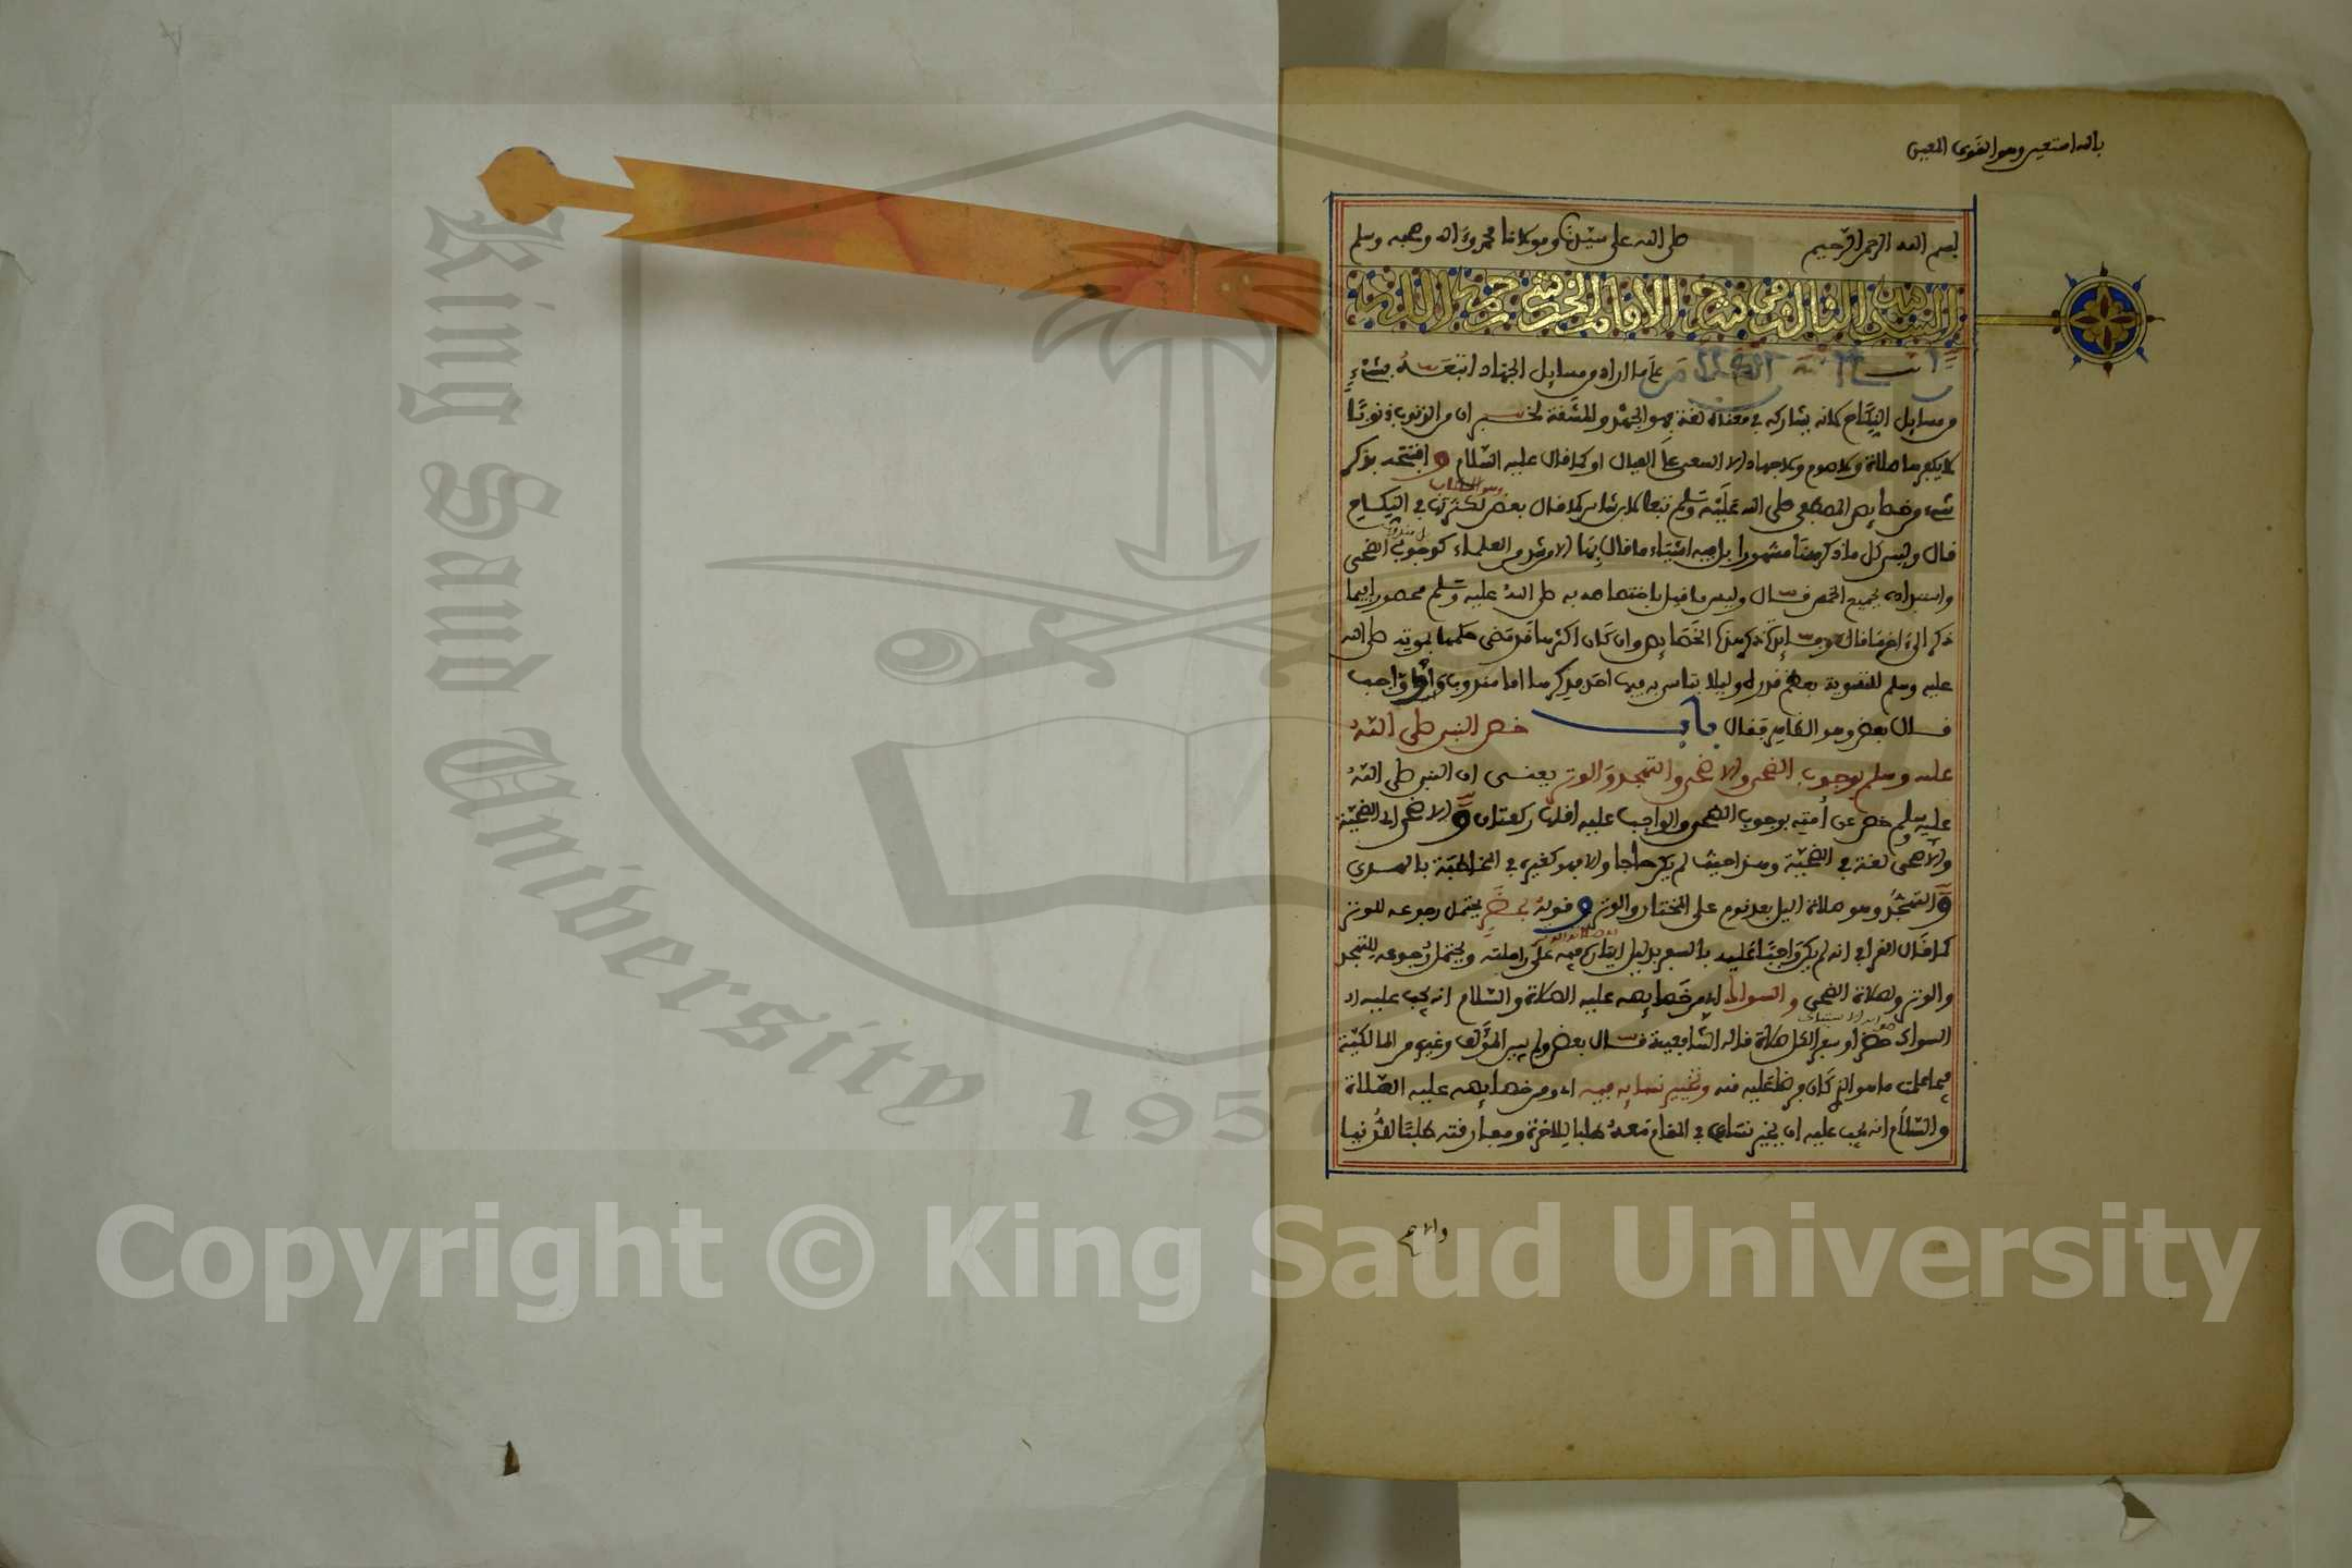 بالله استعين وهو القوي المعين
بسم الله الرحمن الرحيم صلى الله على سيدنا ومولانا محمد وءاله وصحبه وسلم
السفر الثالث من شرح الامام الخرشي رحمه الله
على ما اراد من مسايل الجهاد اتبعه بشيء
من مسايل النكاح لانه يشاركه في معناه لغة وهو الجهد والمشقة لخبر ان من الذنوب ذنوبا
لا يكفرها صلاة ولا صوم ولا جهاد الا السعي على العيال او كما قال عليه السلام وافتتحه بذكر
شيء من خصايص المصطفى صلى الله عليه وسلم تبعا لابن شاس كما قال بعض لكثرتها في النكاح
قال وليس كل ما ذكر هنا مشهورا بل فيه اشياء ما قال بها الا من شذ من العلماء كوجوب الضحى
وليس ما قيل باختصاصه به صلى الله عليه وسلم محصورا فيما
ذكر الخصايص وان كان اكثرها قد مضى حكمها بموته صلى الله
عليه وسلم للتنويه بعظم قدره وليلا يتاسى به فيها احد فذكرها اما مندوب واما واجب
قال بعض وهو الظاهر فقال باب خص النبي صلى الله
عليه وسلم بوجوب الضحى والاضحى والتهجد والوتر يعني ان النبي صلى الله
عليه وسلم خص عن امته بوجوب الضحى والواجب عليه اقلها ركعتان والاضحى اي الضحية
والاضحى لغة في الضحية وهذا حيث لم يكن حاجا والا فهو كغيره في المخاطبة بالهدي
والتهجد وهو صلاة اليل بعد نوم على المختار والوتر وقوله بحضر يحتمل رجوعه للوتر
كما قال القرافي انه لم يكن واجبا عليه بالسفر بدليل ايتاره فيه على راحلته ويحتمل رجوعه للتهجد
والوتر وصلاة الضحى والسواك اي من خصايصه عليه الصلاة والسلام انه يجب عليه
السواك حضرا وسفرا لكل صلاة قاله الشافعية قال بعض ولم يبين المؤلف وغيره من المالكية
فيما علمت ما هو الذي كان فرضا عليه منه وتخيير نسايه فيه اي ومن خصايصه عليه الصلاة
والسلام انه يجب عليه ان يخير نساءه في المقام معه طلبا للاخرة ومفارقته طلبا للدنيا
King Saud University
1957
Copyright © King Saud University